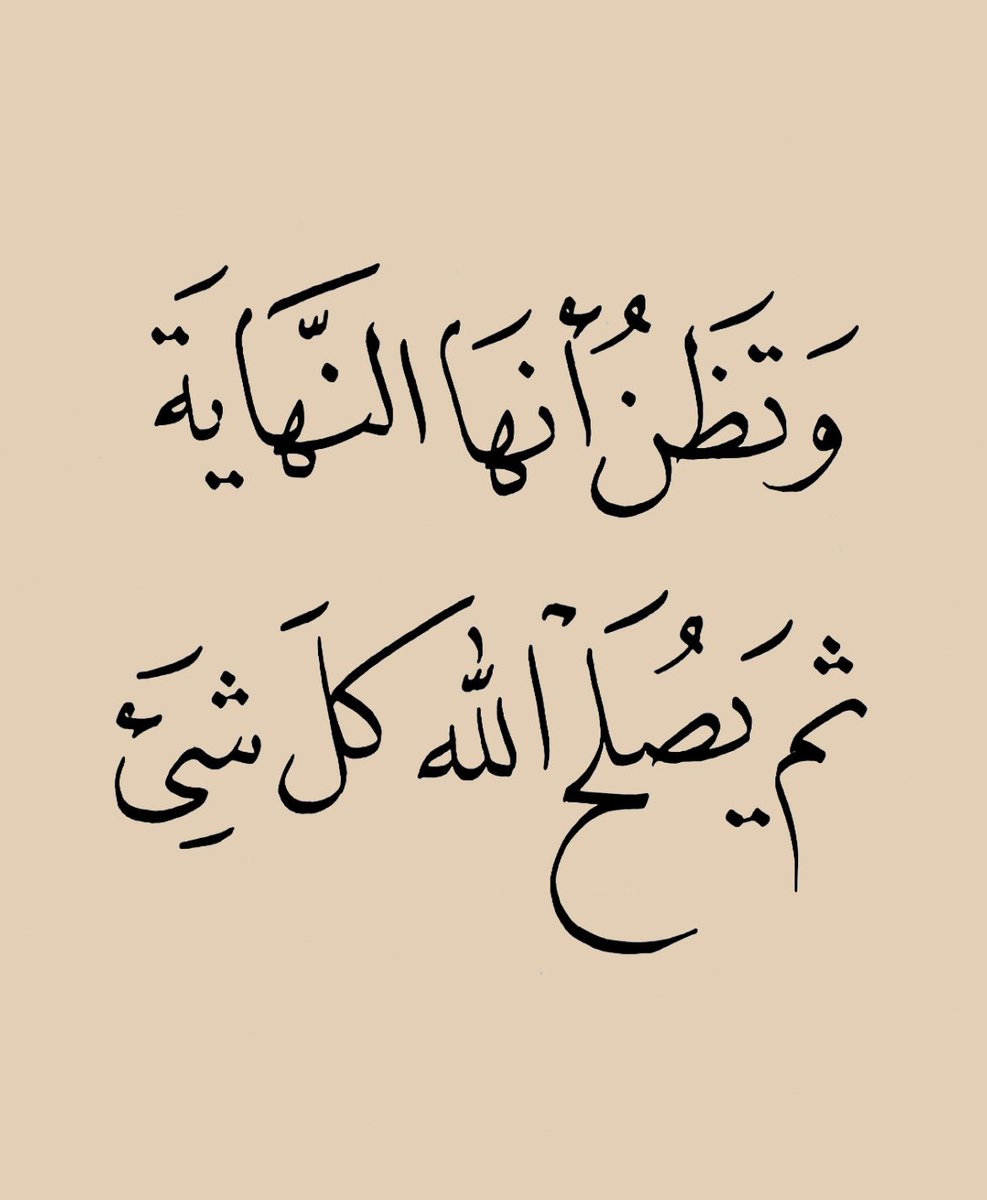 وَتظَنُ أنهَا النَّهَايةَ
ثم يَصُلَح ٱللّٰه كلَ شِيَئ